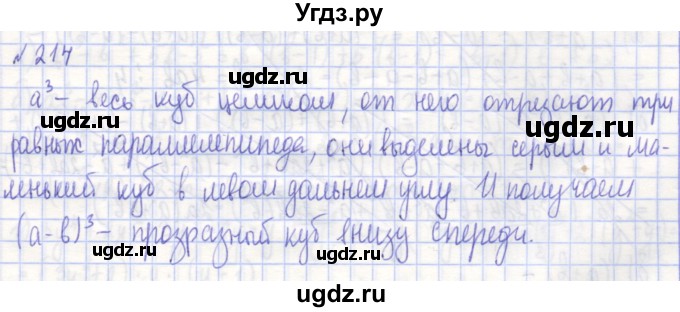 Угдз.ру
№ 214
ugdz.ru ugdz.ru
a³ - весь куб целиком, от него отрезают три
равных параллелепипеда, они выделены серым и ма-
ugdz.ru ugdz.ru
ленький куб в левом дальнем углу. И получаем
(a-b)³ - прозразный куб внизу спереди.
ugdz.ru ugdz.ru
ugdz.ru